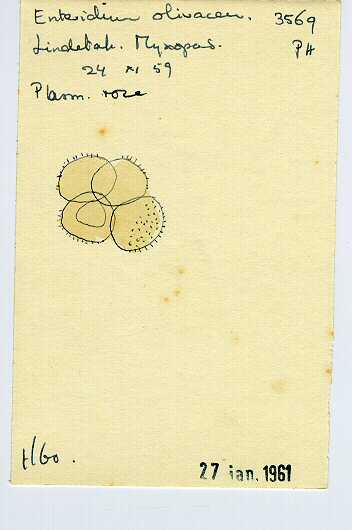 Enteridium olivaceu. 3569
Lindebak. Myxopus. PH
24 XI 59
Plasm. rose
27 jan. 1961